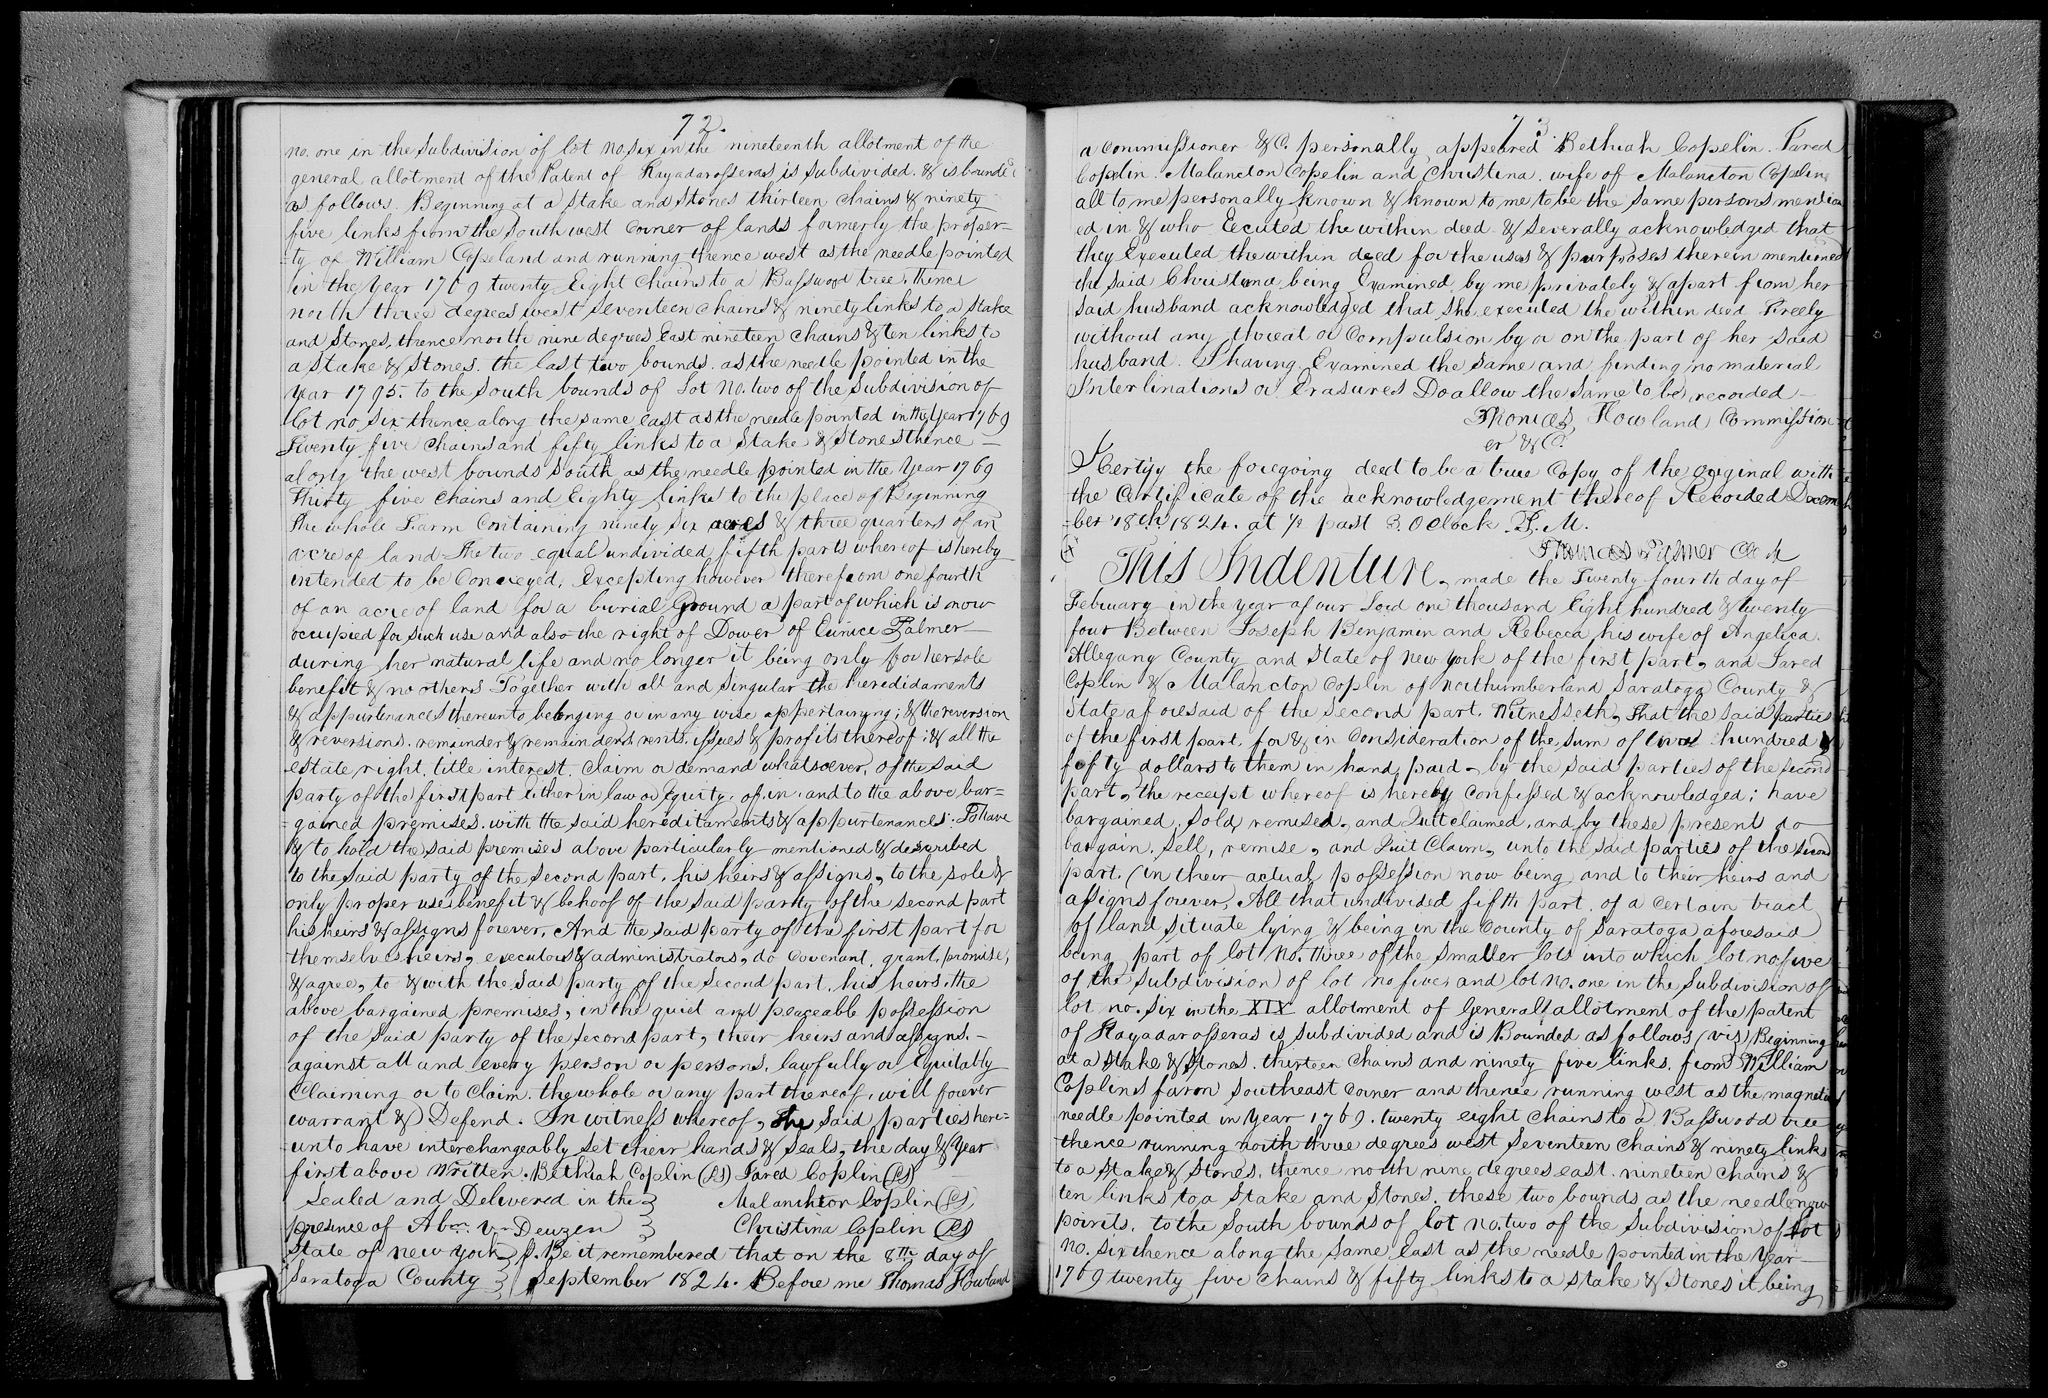 72.
no. one in the subdivision of lot no. six in the nineteenth allotment of the
general allotment of the Patent of Kayadarosseras is subdivided. & is bounded
as follows. Beginning at a stake and stones thirteen chains & ninety
five links from the South west corner of lands formerly the proper-
-ty of William Copeland and running thence west as the needle pointed
in the year 1769 twenty Eight chains to a Basswood tree. thence
north three degrees west seventeen chains & ninety links to a stake
and stones, thence north nine degrees East nineteen chains & ten links to
a stake & stones. the last two bounds. as the needle pointed in the
year 1795. to the south bounds of Lot No. two of the subdivision of
lot no. six thence along the same east as the needle pointed in the year 1769
Twenty five chains and fifty links to a stake & stones thence —
along the west bounds south as the needle pointed in the year 1769
Thirty five chains and Eighty links to the place of Beginning
the whole Farm Containing ninety six acres & three quarters of an
acre of land - The two equal undivided fifth parts whereof is hereby
intended to be Conveyed, Excepting however therefrom one fourth
of an acre of land for a burial Ground a part of which is now
occupied for such use and also the right of Dower of Eunice Palmer —
during her natural life and no longer it being only for her sole
benefit & no others Together with all and singular the heredidaments
& appurtenances thereunto belonging or in any wise appertaining; & the reversion
& reversions. remainder & remainders rents, issues & profits thereof; & all the
estate, right, title interest, claim or demand whatsoever, of the said
party of the first part Either in law or Equity. of. in. and to the above bar=
=gained premises. with the said hereditaments & appurtenances. To have
& to hold the said premises above particularly mentioned & described
to the said party of the second part, his heirs & assigns, to the sole &
only proper use, benefit & behoof of the said party of the second part
his heirs & assigns forever. And the said party of the first part for
themselves, heirs, executors & administrators, do Covenant, grant, promise,
& agree, to & with the said party of the second part, his heirs, the
above bargained premises, in the quiet and peaceable possession
of the said party of the second part, their heirs and assigns. —
against all and every person or persons, lawfully or Equitably
Claiming or to Claim. the whole or any part thereof, will forever
warrant & Defend. In witness whereof, the said parties here=
-unto have interchangeably set their hands & seals, the day & year
first above written. Bethiah Coplin (LS) Jared Coplin (LS)
Sealed and Delivered in the } Malanchton Coplin (LS)
presence of Abm. Vn Deuzen } Christina Coplin (LS)
State of New York } S. Be it remembered that on the 8th day of
Saratoga County } September 1824. Before me Thomas Howland
73
a commissioner &C. personally appeared Bethiah Copelin. Jared
Copelin. Malancton Copelin and Christina. wife of Malancton Copelin
all to me personally known & known to me to be the same persons mention
ed in & who Eecuted the within deed & severally acknowledged that
they Executed the within deed for the uses & purposes therein mentioned
the said Christina being Examined by me privately & apart from her
said husband acknowledged that she executed the within deed Freely
without any threat or Compulsion by or on the part of her said
husband. I having Examined the same and finding no material
Interlinations or Erasures Do allow the same to be recorded —
Thomas Howland Commission-
er &C.
I Certify the foregoing deed to be a true Copy of the original with
the Certificate of the acknowledgement thereof Recorded Decem
-ber 18th 1824. at ½ past 3 O Clock P. M.
Thomas Palmer Clerk
This Indenture, made the Twenty fourth day of
February in the year of our Lord one thousand Eight hundred & twenty
four Between Joseph Benjamin and Rebecca his wife of Angelica.
Allegany County and State of New York of the first part, and Jared
Coplin & Malancton Coplin of Northumberland Saratoga County &
State aforesaid of the second part. Witnesseth, that the said parties
of the first part. for & in Consideration of the sum of two hundred &
fifty dollars to them in hand, paid by the said parties of the second
part, the receipt whereof is hereby Confessed & acknowledged; have
bargained, sold, remised, and Quitclaimed, and by these present do
bargain, sell, remise, and Quit Claim, unto the said parties of the second
part, (in their actual possession now being and to their heirs and
assigns forever, All that undivided fifth part. of a certain tract
of land situate lying & being in the County of Saratoga aforesaid
being part of lot No. three of the smaller lots into which lot no. five
of the subdivision) of lot no five, and lot no. one in the subdivision of
lot no. six in the XIX allotment of General allotment of the patent
of Kayadarosseras is subdivided and is Bounded as follows (viz) Beginning
at a stake & stones. thirteen chains and ninety five links. from William
Coplins farm Southeast corner and thence running west as the magnetic
needle pointed in year 1769. twenty eight chains to a Basswood tree
thence running north three degrees west seventeen chains & ninety links
to a stake & stones, thence north nine degrees east. nineteen chains &
ten links to a stake and stones. these two bounds as the needle now
points. to the south bounds of lot no. two of the subdivision of lot
no. six thence along the same East as the needle pointed in the year
1769 twenty five chains & fifty links to a stake & stones it being